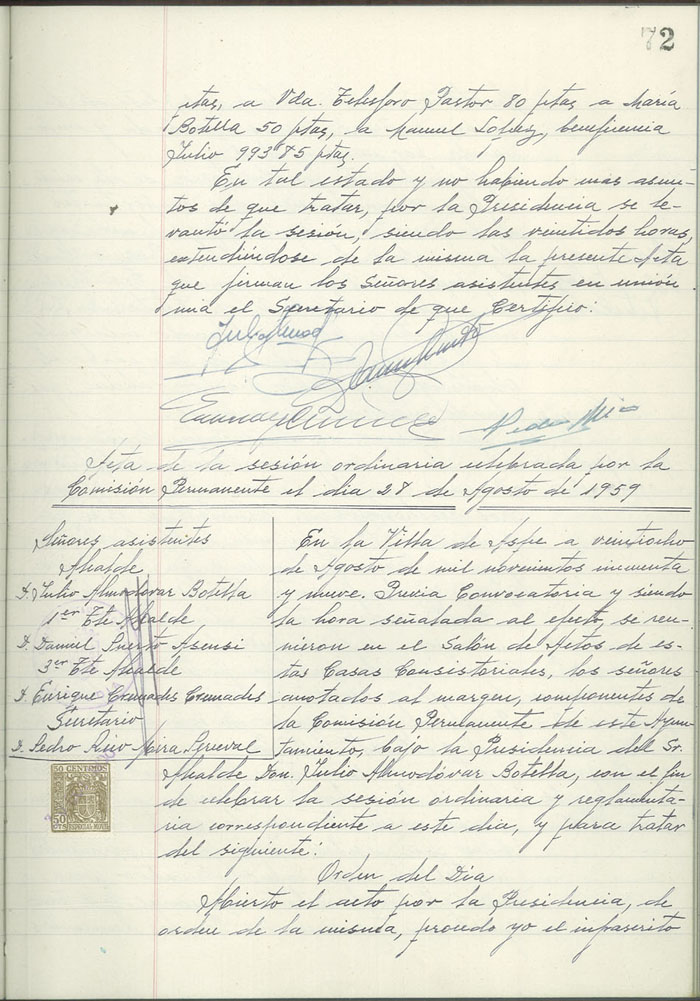 72
etas, a Vda. Telesforo Pastor 80 ptas, a María
Botella 50 ptas, a Manuel López, beneficencia
Julio 993'75 ptas.
En tal estado y no habiendo mas asun-
tos de que tratar, por la Presidencia se le-
vantó la sesión, siendo las veintidos horas,
extendiéndose de la misma la presente Acta
que firman los Señores asistentes en unión
mia el Secretario de que Certifico:
Acta de la sesión ordinaria celebrada por la
Comisión Permanente el dia 28 de Agosto de 1959
Señores asistentes
Alcalde
D. Julio Almodóvar Botella
1er Tte Alcalde
D. Daniel Puerto Asensi
3er Tte Alcalde
D. Enrique Cremades Cremades
Secretario
D. Pedro Rico Mira
En la Villa de Aspe a veintiocho
de Agosto de mil novecientos cincuenta
y nueve. Previa Convocatoria y siendo
la hora señalada al efecto, se reu-
nieron en el Salón de Actos de es-
tas Casas Consistoriales, los señores
anotados al margen, componentes de
la Comisión Permanente de este Ayun-
tamiento, bajo la Presidencia del Sr.
Alcalde Don Julio Almodóvar Botella, con el fin
de celebrar la sesión ordinaria y reglamenta-
ria correspondiente a este dia, y para tratar
del siguiente:
Orden del Dia
Abierto el acto por la Presidencia, de
orden de la misma, procedo yo el infrascrito
50 CENTIMOS
50
PTS
ESPECIAL MOVIL